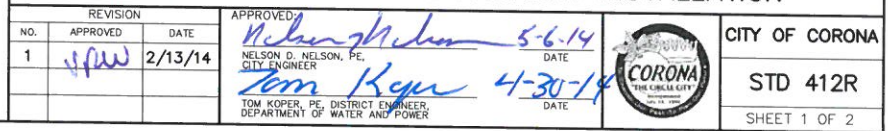 REVISION
NO. APPROVED DATE
1 2/13/14
APPROVED:
Nelson Nelson 5-6-14
NELSON D. NELSON, PE, DATE
CITY ENGINEER
Tom Koper 4-30-14
TOM KOPER, PE, DISTRICT ENGINEER, DATE
DEPARTMENT OF WATER AND POWER
CORONA
"THE CIRCLE CITY"
CITY OF CORONA
STD 412R
SHEET 1 OF 2